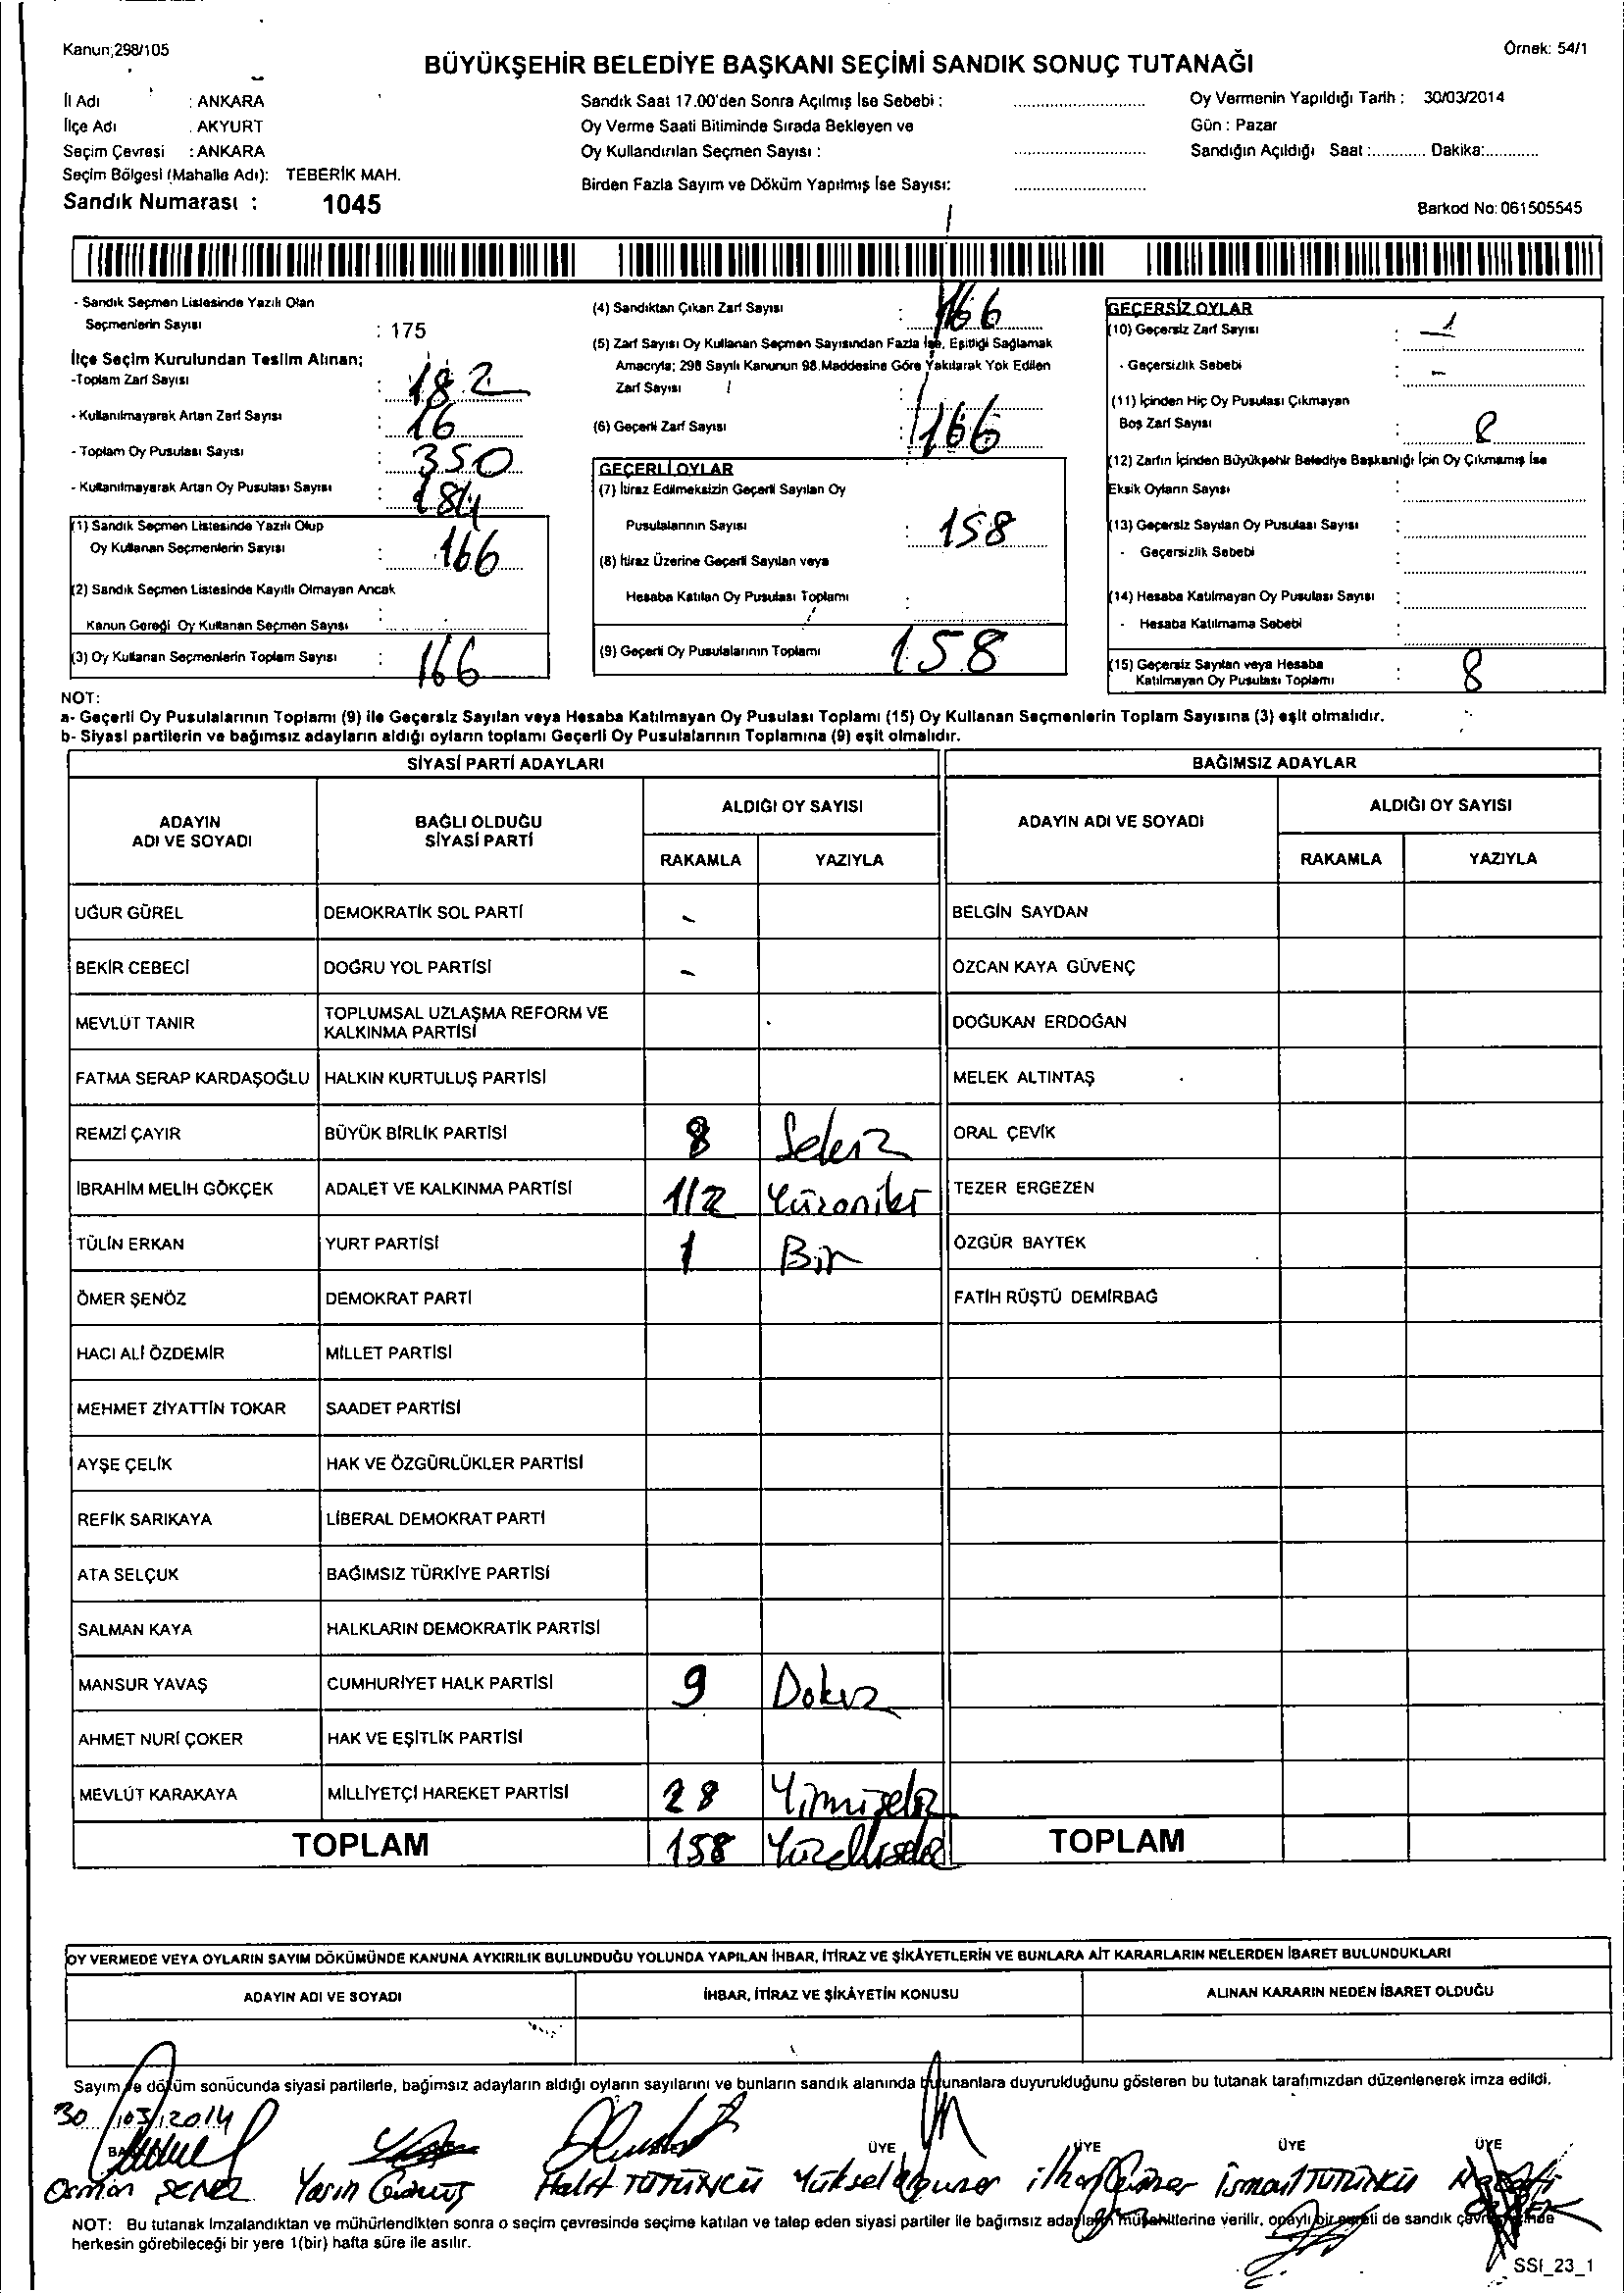 Kanun;298/105
Örnek: 54/1
BÜYÜKŞEHİR BELEDİYE BAŞKANI SEÇİMİ SANDIK SONUÇ TUTANAĞI
İl Adı : ANKARA
İlçe Adı : AKYURT
Seçim Çevresi : ANKARA
Seçim Bölgesi (Mahalle Adı): TEBERİK MAH.
Sandık Numarası : 1045
Sandık Saat 17.00'den Sonra Açılmış İse Sebebi :
Oy Verme Saati Bitiminde Sırada Bekleyen ve
Oy Kullandırılan Seçmen Sayısı :
Birden Fazla Sayım ve Döküm Yapılmış İse Sayısı:
Oy Vermenin Yapıldığı Tarih : 30/03/2014
Gün : Pazar
Sandığın Açıldığı Saat :............ Dakika:............
Barkod No: 061505545
- Sandık Seçmen Listesinde Yazılı Olan
Seçmenlerin Sayısı : 175
İlçe Seçim Kurulundan Teslim Alınan;
-Toplam Zarf Sayısı : 182
- Kullanılmayarak Artan Zarf Sayısı : 16
- Toplam Oy Pusulası Sayısı : 350
- Kullanılmayarak Artan Oy Pusulası Sayısı : 184
(1) Sandık Seçmen Listesinde Yazılı Olup
Oy Kullanan Seçmenlerin Sayısı : 166
(2) Sandık Seçmen Listesinde Kayıtlı Olmayan Ancak
Kanun Gereği Oy Kullanan Seçmen Sayısı :
(3) Oy Kullanan Seçmenlerin Toplam Sayısı : 166
(4) Sandıktan Çıkan Zarf Sayısı : 166
(5) Zarf Sayısı Oy Kullanan Seçmen Sayısından Fazla İse, Eşitliği Sağlamak
Amacıyla; 298 Sayılı Kanunun 98.Maddesine Göre Yakılarak Yok Edilen
Zarf Sayısı :
(6) Geçerli Zarf Sayısı : 166
GEÇERLİ OYLAR
(7) İtiraz Edilmeksizin Geçerli Sayılan Oy
Pusulalarının Sayısı : 158
(8) İtiraz Üzerine Geçerli Sayılan veya
Hesaba Katılan Oy Pusulası Toplamı :
(9) Geçerli Oy Pusulalarının Toplamı 158
GEÇERSİZ OYLAR
(10) Geçersiz Zarf Sayısı :
- Geçersizlik Sebebi : -
(11) İçinden Hiç Oy Pusulası Çıkmayan
Boş Zarf Sayısı : 8
(12) Zarfın İçinden Büyükşehir Belediye Başkanlığı İçin Oy Çıkmamış İse
Eksik Oyların Sayısı :
(13) Geçersiz Sayılan Oy Pusulası Sayısı :
- Geçersizlik Sebebi :
(14) Hesaba Katılmayan Oy Pusulası Sayısı :
- Hesaba Katılmama Sebebi :
(15) Geçersiz Sayılan veya Hesaba
Katılmayan Oy Pusulası Toplamı : 8
NOT:
a- Geçerli Oy Pusulalarının Toplamı (9) ile Geçersiz Sayılan veya Hesaba Katılmayan Oy Pusulası Toplamı (15) Oy Kullanan Seçmenlerin Toplam Sayısına (3) eşit olmalıdır.
b- Siyasi partilerin ve bağımsız adayların aldığı oyların toplamı Geçerli Oy Pusulalarının Toplamına (9) eşit olmalıdır.
SİYASİ PARTİ ADAYLARI
BAĞIMSIZ ADAYLAR
ADAYIN ADI VE SOYADI
BAĞLI OLDUĞU SİYASİ PARTİ
ALDIĞI OY SAYISI
RAKAMLA YAZIYLA
ADAYIN ADI VE SOYADI
ALDIĞI OY SAYISI
RAKAMLA YAZIYLA
UĞUR GÜREL DEMOKRATİK SOL PARTİ - BELGİN SAYDAN
BEKİR CEBECİ DOĞRU YOL PARTİSİ - ÖZCAN KAYA GÜVENÇ
MEVLÜT TANIR TOPLUMSAL UZLAŞMA REFORM VE KALKINMA PARTİSİ DOĞUKAN ERDOĞAN
FATMA SERAP KARDAŞOĞLU HALKIN KURTULUŞ PARTİSİ MELEK ALTINTAŞ
REMZİ ÇAYIR BÜYÜK BİRLİK PARTİSİ 8 Sekiz ORAL ÇEVİK
İBRAHİM MELİH GÖKÇEK ADALET VE KALKINMA PARTİSİ 112 Yüzoniki TEZER ERGEZEN
TÜLİN ERKAN YURT PARTİSİ 1 Bir ÖZGÜR BAYTEK
ÖMER ŞENÖZ DEMOKRAT PARTİ FATİH RÜŞTÜ DEMİRBAĞ
HACI ALİ ÖZDEMİR MİLLET PARTİSİ
MEHMET ZİYATTİN TOKAR SAADET PARTİSİ
AYŞE ÇELİK HAK VE ÖZGÜRLÜKLER PARTİSİ
REFİK SARIKAYA LİBERAL DEMOKRAT PARTİ
ATA SELÇUK BAĞIMSIZ TÜRKİYE PARTİSİ
SALMAN KAYA HALKLARIN DEMOKRATİK PARTİSİ
MANSUR YAVAŞ CUMHURİYET HALK PARTİSİ 9 Dokuz
AHMET NURİ ÇOKER HAK VE EŞİTLİK PARTİSİ
MEVLÜT KARAKAYA MİLLİYETÇİ HAREKET PARTİSİ 28 Yirmisekiz
TOPLAM 158 Yüzellisekiz TOPLAM
OY VERMEDE VEYA OYLARIN SAYIM DÖKÜMÜNDE KANUNA AYKIRILIK BULUNDUĞU YOLUNDA YAPILAN İHBAR, İTİRAZ VE ŞİKÂYETLERİN VE BUNLARA AİT KARARLARIN NELERDEN İBARET BULUNDUKLARI
ADAYIN ADI VE SOYADI İHBAR, İTİRAZ VE ŞİKÂYETİN KONUSU ALINAN KARARIN NEDEN İBARET OLDUĞU
Sayım ve döküm sonucunda siyasi partilerle, bağımsız adayların aldığı oyların sayılarını ve bunların sandık alanında bulunanlara duyurulduğunu gösteren bu tutanak tarafımızdan düzenlenerek imza edildi.
30/03/2014
ÜYE ÜYE ÜYE ÜYE
Osman ŞENEL Yasin Halit TÜTÜNCÜ Yüksel İlhan İsmail TÜTÜNCÜ
NOT: Bu tutanak İmzalandıktan ve mühürlendikten sonra o seçim çevresinde seçime katılan ve talep eden siyasi partiler ile bağımsız adayların müşahitlerine verilir, onaylı bir sureti de sandık çevresinde
herkesin görebileceği bir yere 1(bir) hafta süre ile asılır.
SSI_23_1